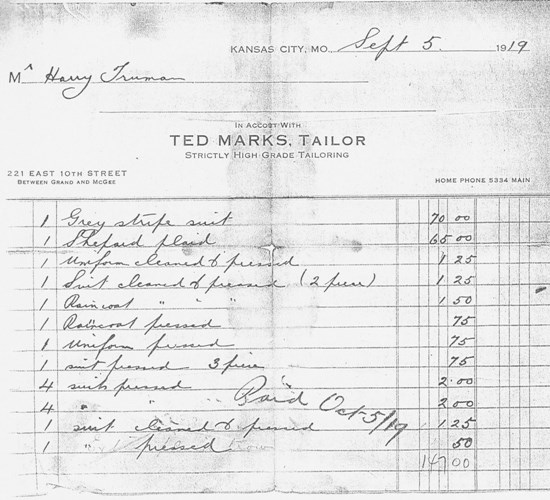 KANSAS CITY, MO., Sept 5. 1919
Mr Harry Truman
IN ACCOUNT WITH
TED MARKS, TAILOR
STRICTLY HIGH GRADE TAILORING
221 EAST 10TH STREET
BETWEEN GRAND AND MCGEE
HOME PHONE 5334 MAIN
1 Grey stripe suit 70 00
1 Shepard plaid 65 00
1 Uniform cleaned & pressed 1 25
1 Suit cleaned & pressed (2 piece) 1 25
1 Raincoat " " " 1 50
1 Raincoat pressed 75
1 Uniform pressed 75
1 suit pressed 3 piece 75
4 suits pressed 2.00
4 " " " 2 00
Paid Oct 5/19
1 suit cleaned & pressed 1 25
1 " pressed 50
147 00